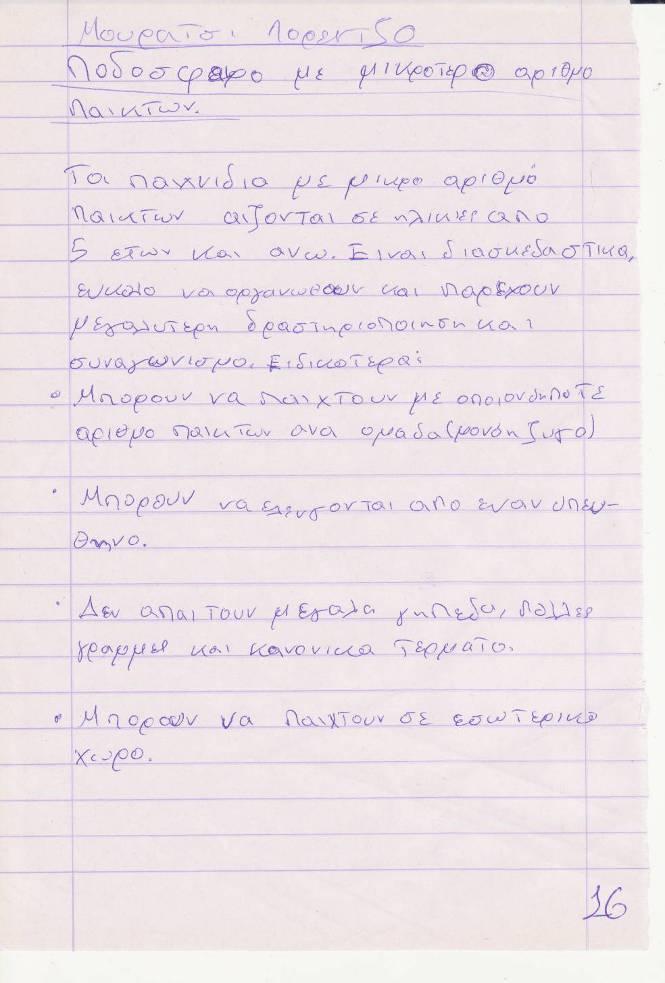 Μουρατσι Λορεντζο
Ποδοσφαρο με μικροτερο αριθμο
Παικτων.
Τα παχνιδια με μικρο αριθμό
παικτων αιζονται σε ηλικιες απο
5 ετων και ανω. Ειναι διασκεδαστικα,
ευκολο να οργανωθουν και παρεχουν
μεγαλυτερη δραστηριοποιηση και
συναγωνισμο. Ειδικοτερα:
• Μπορουν να παιχτουν με οποιονδηποτε
αριθμο παικτων ανα ομαδα (μονοη ζυγο)
• Μπορουν να ελενγονται απο εναν υπευ-
θηνο.
• Δεν απαιτουν μεγαλα γηπεδα, πολλες
γραμμες και κανονικα τερματο.
• Μπορουν να παιχτουν σε εσωτερικο
χωρο.
16